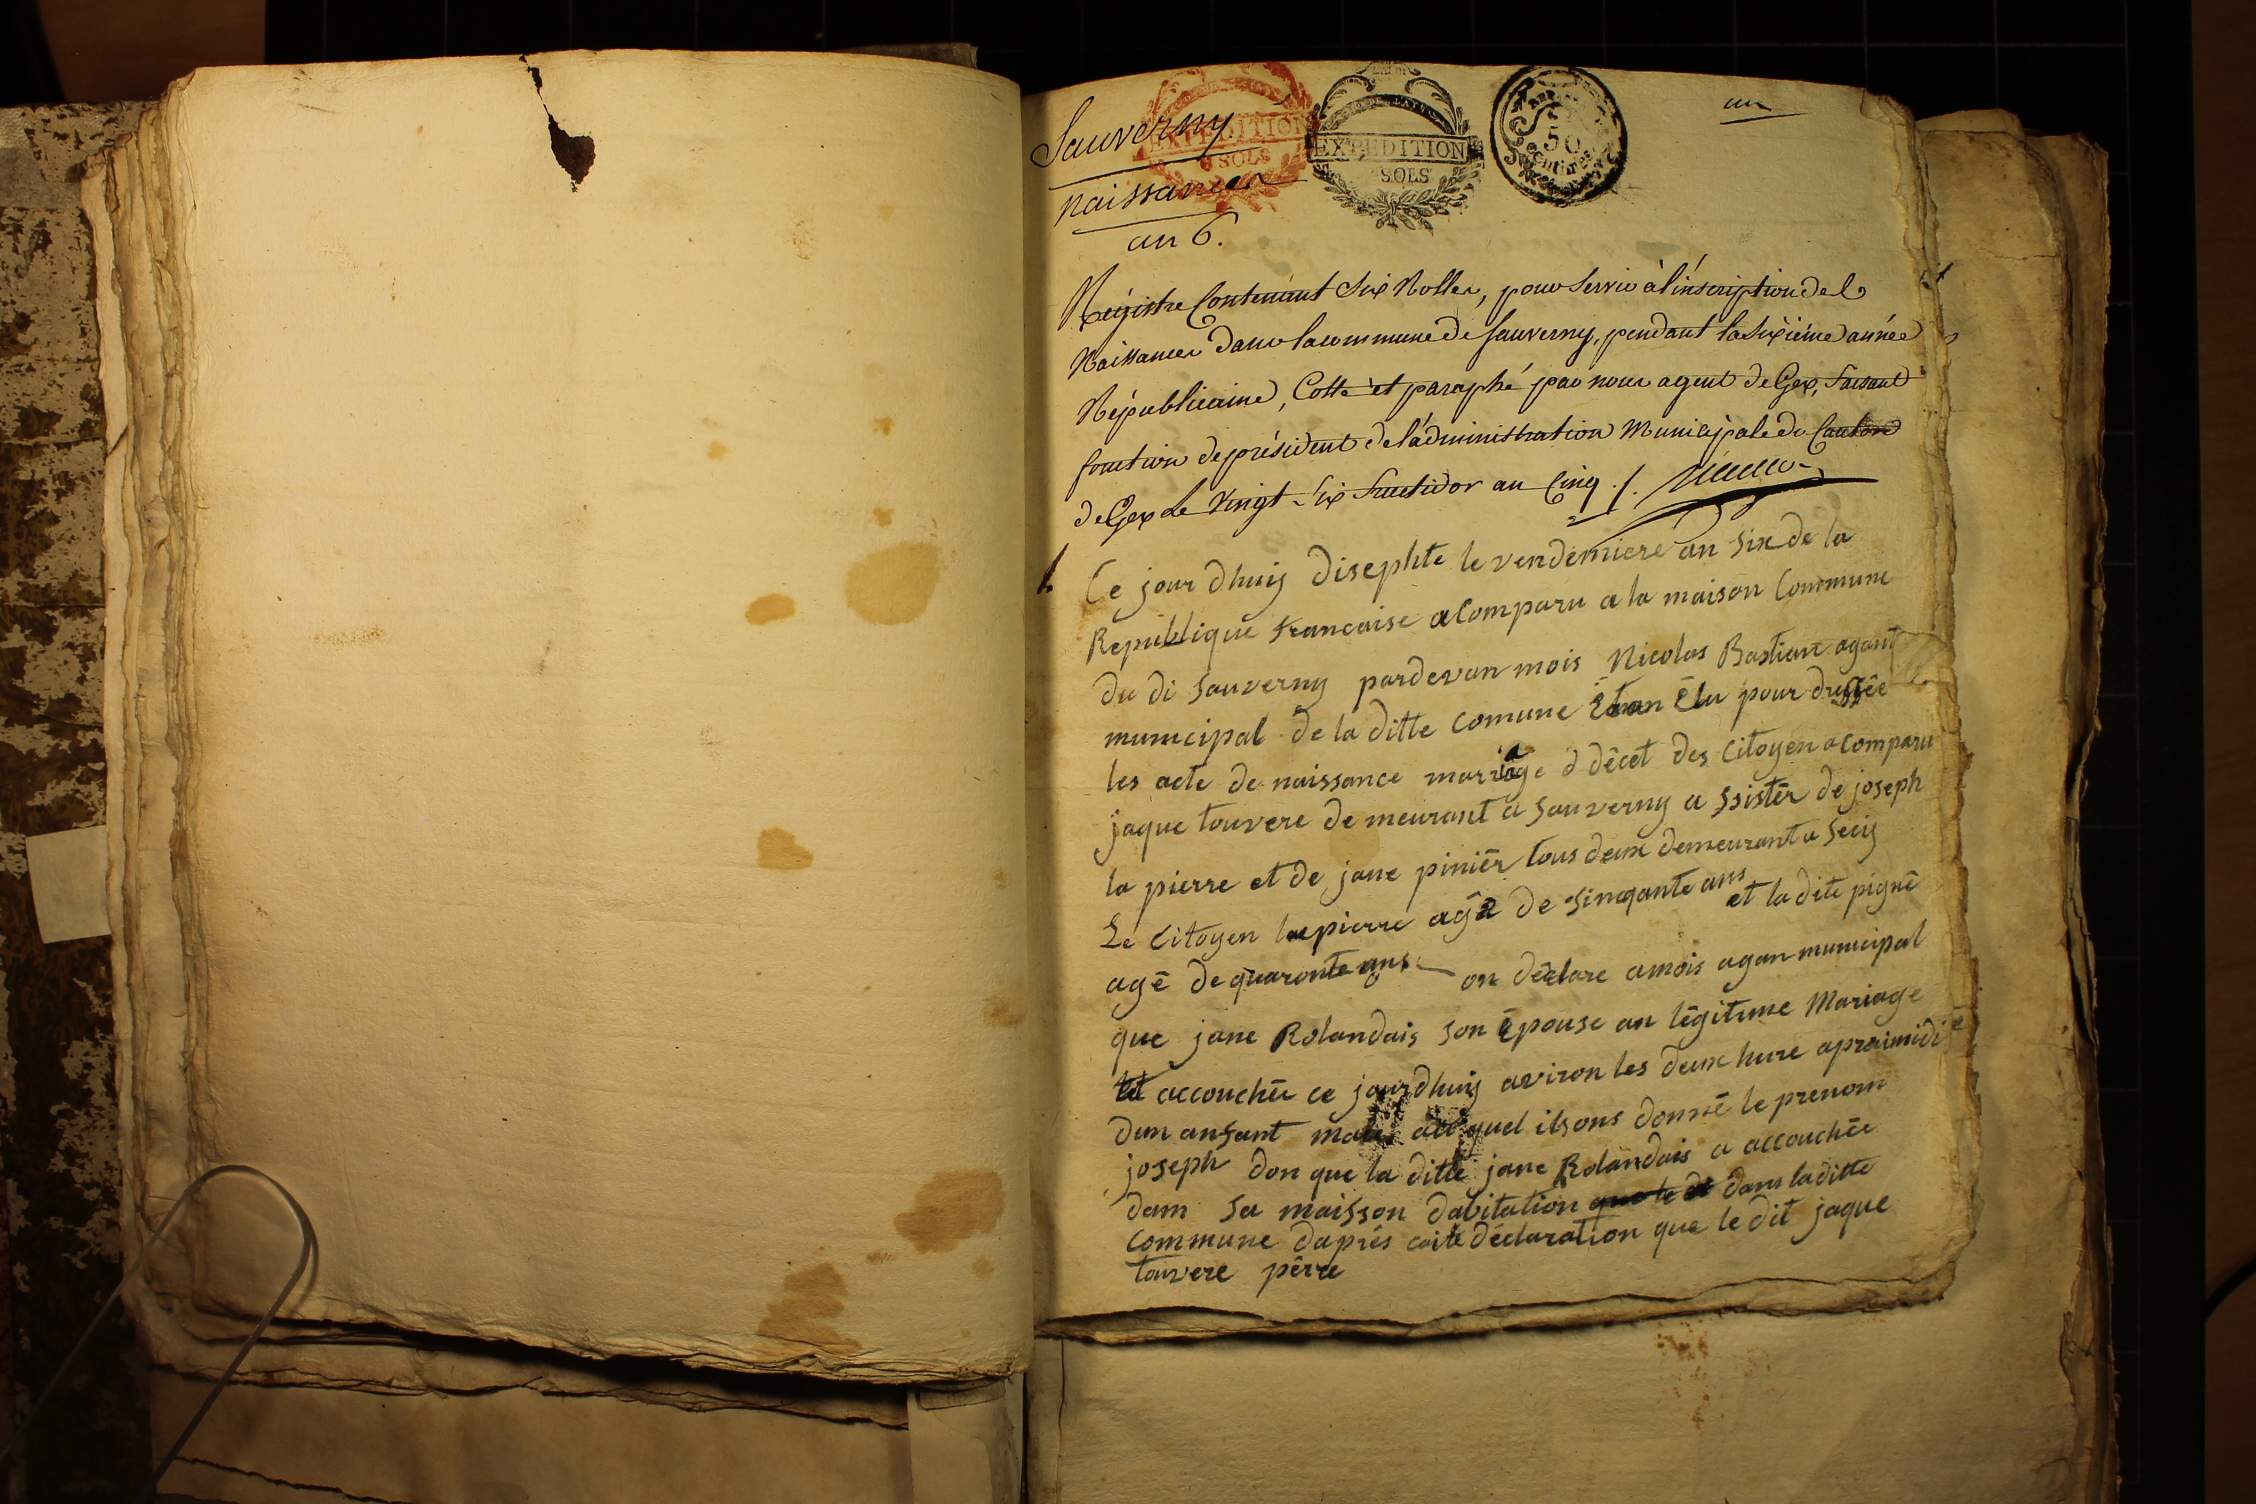 Sauverny
EXPEDITION
SOLS
EXPEDITION
SOLS
50
centimes
un
naissances
an 6.
Régistre Contenant Six Rolles, pour Servir à l'inscription de
Naissances dans la commune de Sauverny, pendant la sixième année
Républicaine, Cotté et paraphé par nous agent de Gex, faisant
fonction de président de l'administration Municipale du Canton
de Gex Le Vingt-Six fructidor an Cinq ./.
1. Ce jour dhuij disephte le vendemiere an six de la
Republique francaise a Comparu a la maison Commune
du di sauverny pardevan mois Nicolas Bastian agant
municipal de la ditte comune Etan Elu pour dressée
les acte de naissance mariage d décet des citoyen a comparu
jaque touvere de meurant a sauverny a ssistér de joseph
la pierre et de jane piniér tous deux demeurant a secij
Le citoyen lapierre agé de sinqante ans et la dite pigné
agé de quarante ans on déclare amois agan municipal
que jane Rolandais son épouse an légitime Mariage
et accouchée ce jourdhuij aviron les deux hure apraimidi
dun anfant male auquel ilsons donné le prenom
joseph don que la ditte jane Rolandais a accouchée
dam sa maisson dabitation que le dans laditte
commune daprés caite déclaration que le dit jaque
touvere pérre